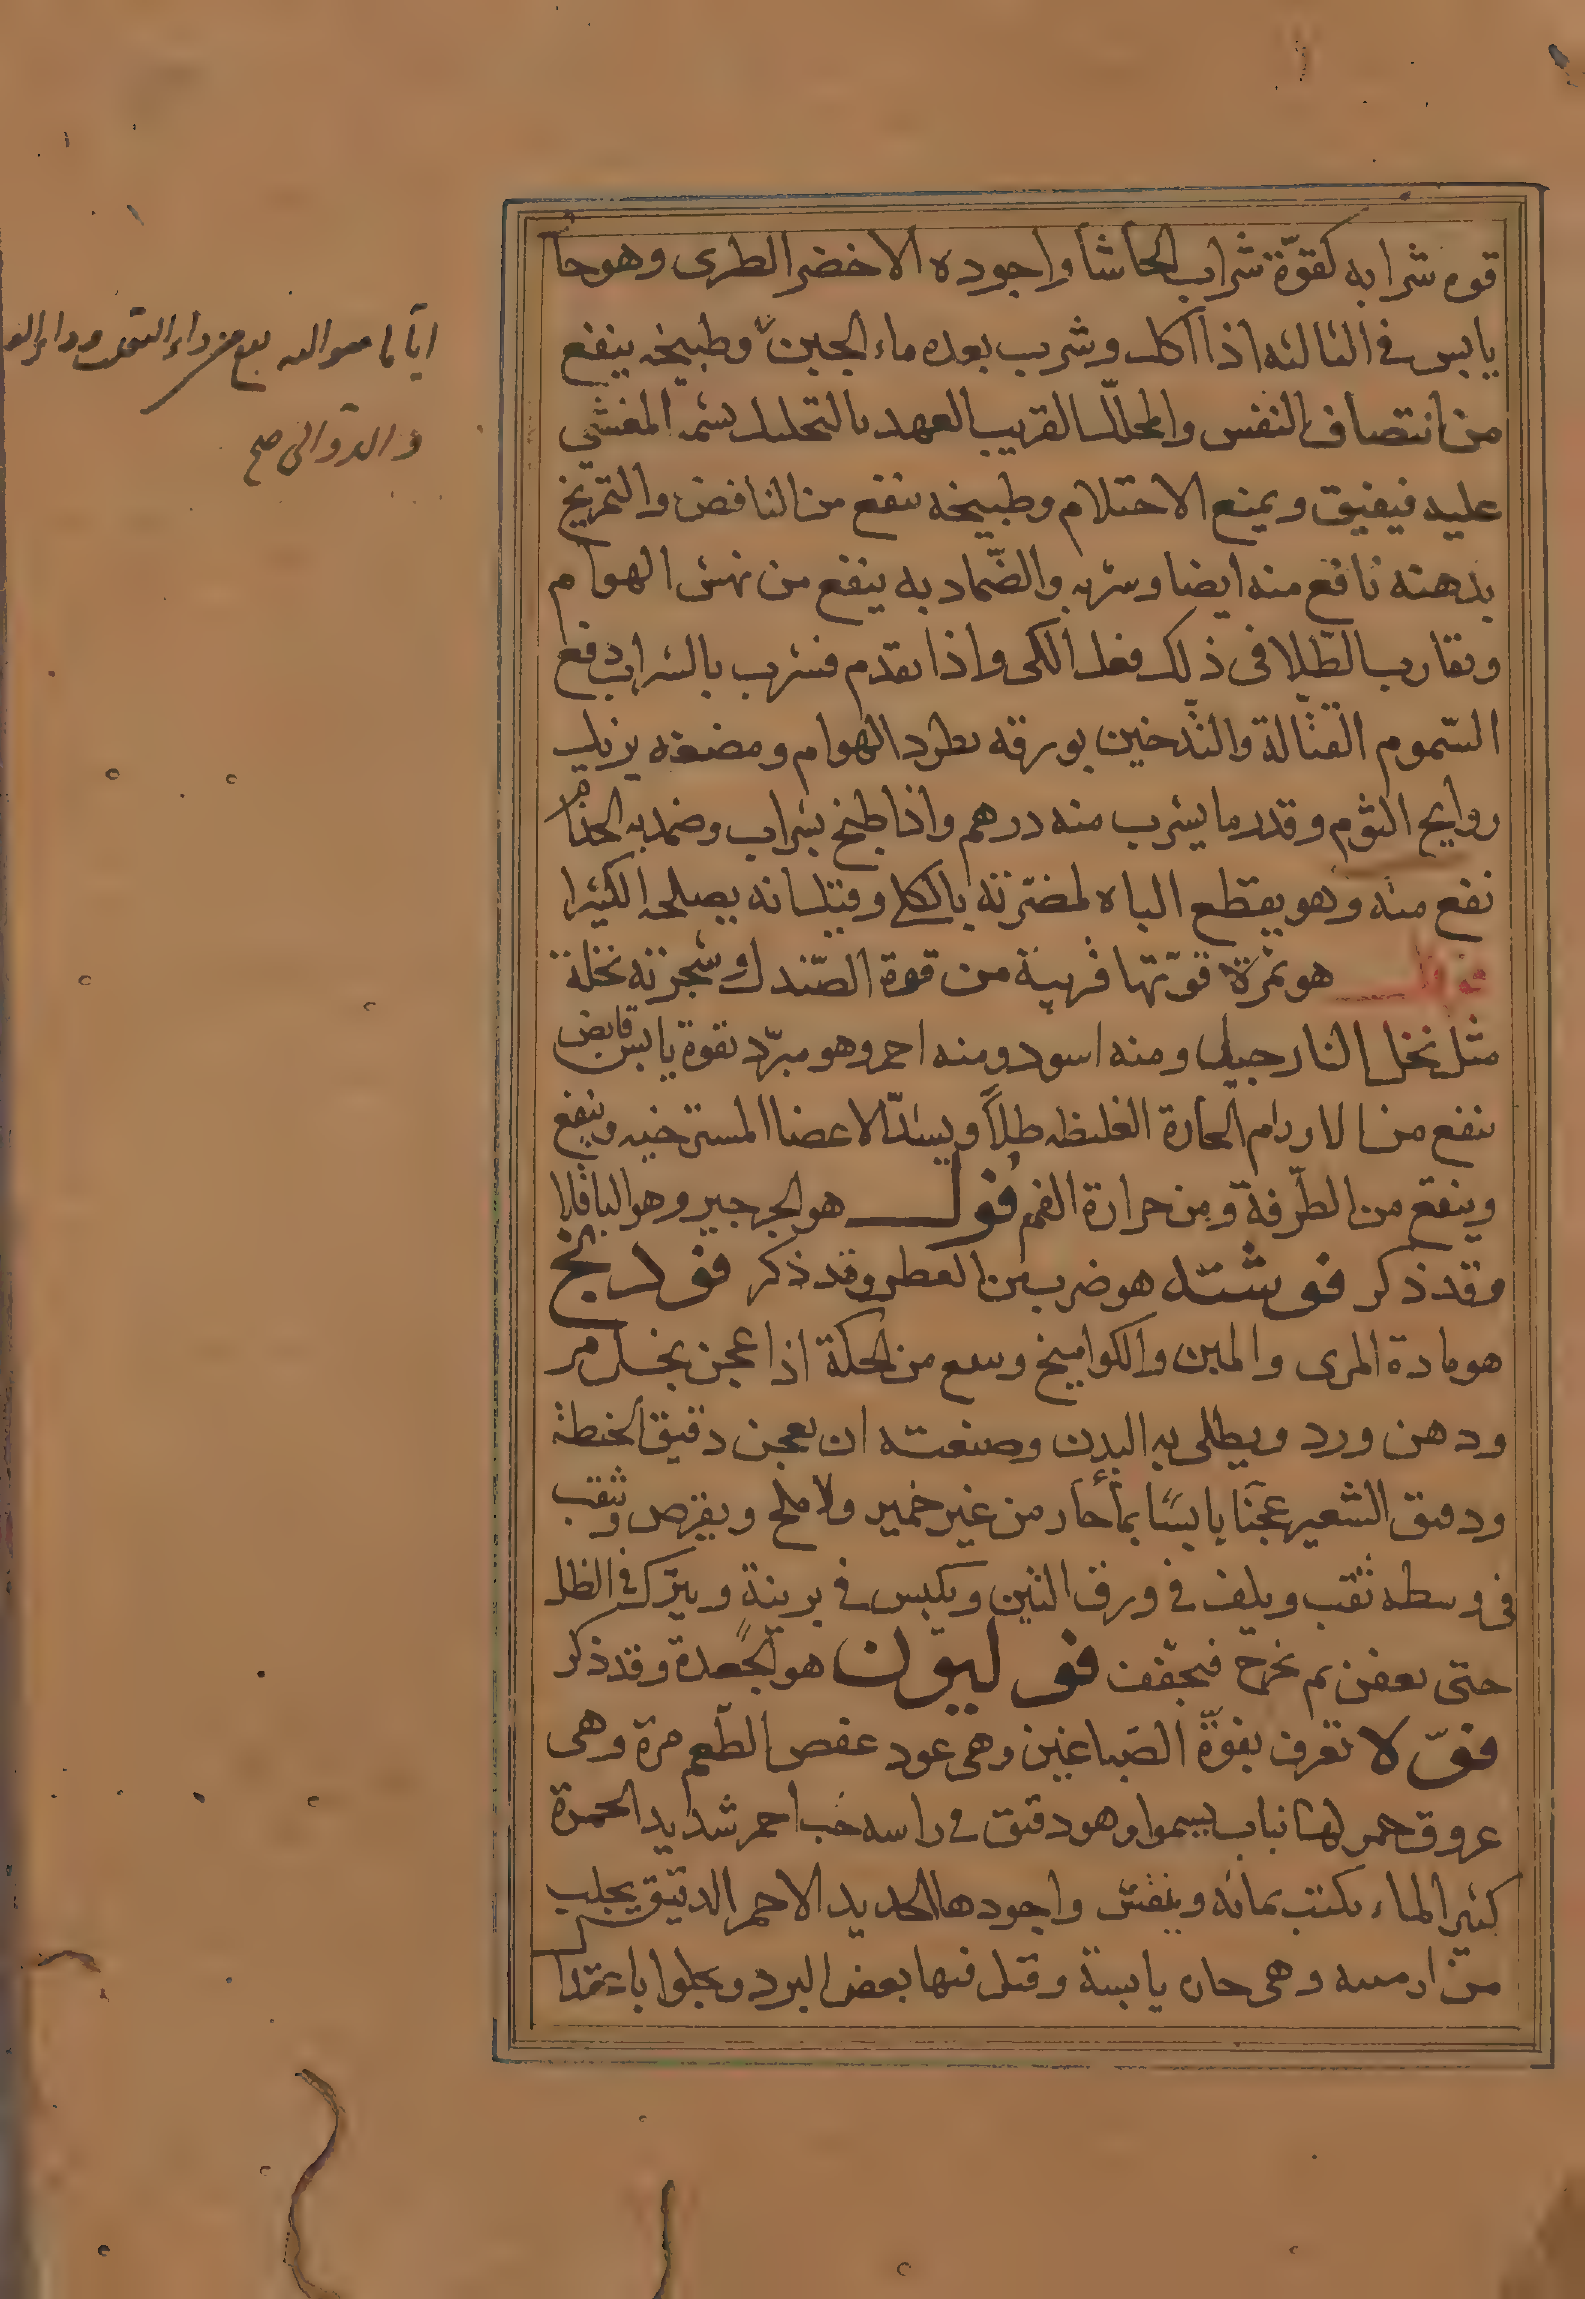 قوه شرابه كقوّة شراب الحاشا واجوده الاخضر الطرى وهو حا
يابس فى الثالثه اذا اكل وشرب بعده ماء الجبن وطبيخه ينفع
من انتصاف النفس والمحلل القريب العهد بالتحليل يشمه المغشي
عليه فيفيق ويمنع الاحتلام وطبيخه ينفع من النافض والتمريخ
بدهنه نافع منه ايضا وشربه والضّماد به ينفع من نهش الهوام
وتقارب الطّلا فى ذلك فعل الكى واذا تقدم فشرب بالشراب دفع
السّموم القتّالة والتّدخين بورقه يطرد الهوام ومضغه يزيل
روايح الثوم وقدر ما يشرب منه درهم واذا طبخ بشراب وضمد به
نفع منه وهو يقطع الباه لمضرته بالكلا يصلحه الكثيرا
هو ثمرة قوّتها قريبة من قوة الصّندل وشجرته نخلة
مثل نخل النارجيل ومنه اسود ومنه احمر وهو مبرّد بقوة يابس قابض
ينفع من الاورام الحارة الغليظه طلاً ويشدّ الاعضا المسترخيه وينفع
وينفع من الطّرفة ومن حرارة الفم فول هو الجرجير وهو الباقلا
وقد ذكر فوشته هو ضرب من العطر وقد ذكر فودنج
هو مادة المرى والبن والكواميخ وينفع من الحكة اذا عجن بخل خمر
ودهن ورد ويطلى به البدن وصنعته ان يعجن دقيق الحنطة
ودقيق الشعير عجنًا يابسًا بماء حار من غير خمير ولا ملح ويقرص وثقب
فى وسطه ثقب ويلف فى ورق التين ويكبس فى برنية ويترك فى الظل
حتى يعفن ثم يخرج فيجفف فوليون هو الجعدة وقد ذكر
فوّلا تعرف بفوّة الصّباغين وهى عود عفص الطّعم مرة وهى
عروق حمر لها نبات يسموا وهو دقيق فى راسه حب احمر شديد الحمرة
كثير الماء يكتب بمائه وينقش واجودها الحديد الاحمر الدقيق يجلب
من ارمينيه وهى حاره يابسة وقيل فيها بعض البرد ويجلوا باعتدا
والدوالى صح